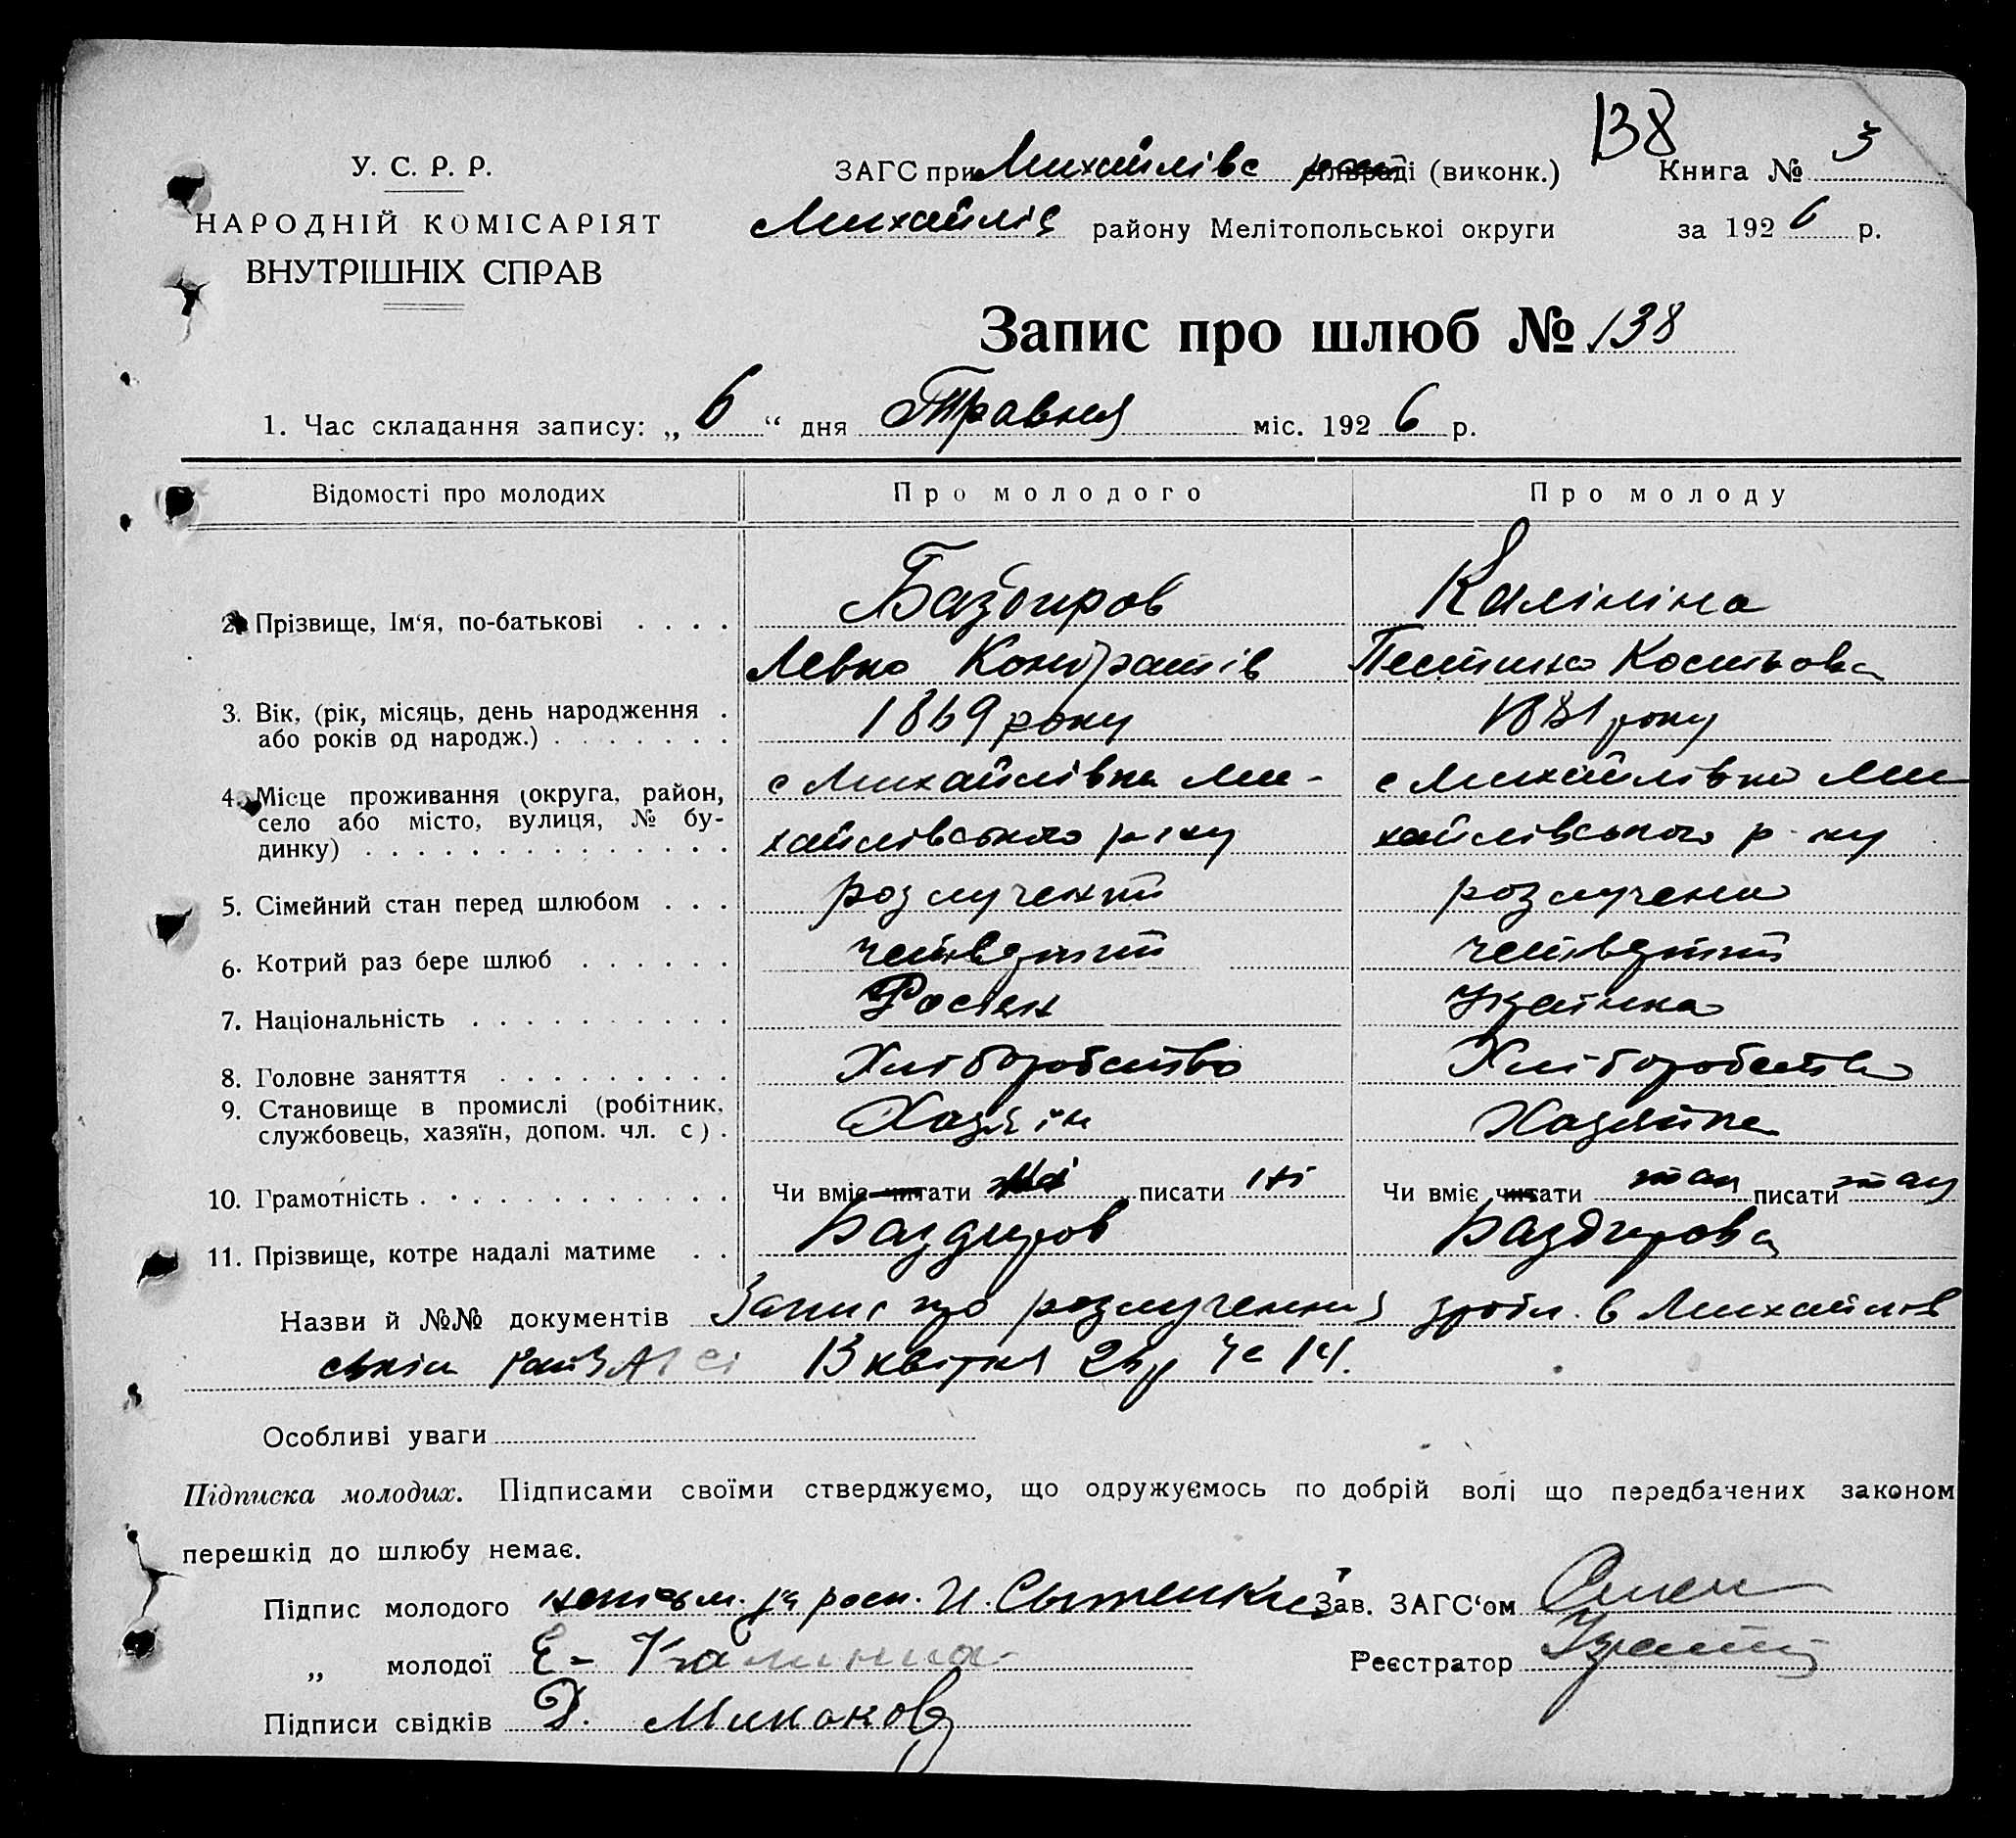 138
У. С. Р. Р.
НАРОДНІЙ КОМІСАРІЯТ
ВНУТРІШНІХ СПРАВ
ЗАГС при Михайлівс раді (виконк.)
Книга № 3
Михайлів району Мелітопольскої округи
за 1926 р.
Запис про шлюб № 138
1. Час складання запису: „ 6 “ дня Травня міс. 1926 р.
Відомості про молодих
Про молодого
Про молоду
2. Прізвище, Ім‘я, по-батькові . . . .
Баздиров
Калініна
Левко Кондратів
Костьова
3. Вік, (рік, місяць, день народження .
або років од народж.) . . . . . . .
1869 року
1881 року
4. Місце проживання (округа, район,
село або місто, вулиця, № бу-
динку) . . . . . . . . . . . . . .
с Михайлівка Ми-
хайлівського р-ну
с Михайлівка Ми
хайлівського р-ну
5. Сімейний стан перед шлюбом . . .
розлучений
розлучена
6. Котрий раз бере шлюб . . . . . .
четвертий
четвертий
7. Національність . . . . . . . . . .
Росіян
Українка
8. Головне заняття . . . . . . . . .
Хліборобство
Хліборобство
9. Становище в промислі (робітник,
службовець, хазяїн, допом. чл. с) .
Хазяін
Хазяйка
10. Грамотність . . . . . . . . . . . .
Чи вміє читати ні писати ні
Чи вміє читати так писати так
11. Прізвище, котре надалі матиме . .
Баздиров
Баздирова
Назви й №№ документів Запис про розлучення зробл. в Михайлов
ськім райЗАГСі 13 квітня 26 р Ч 14.
Особливі уваги
Підписка молодих. Підписами своїми стверджуємо, що одружуємось по добрій волі що передбачених законом
перешкід до шлюбу немає.
Підпис молодого за росп. И.
Зав. ЗАГС‘ом
„ молодої Е- Калинина-
Реєстратор
Підписи свідків Д.